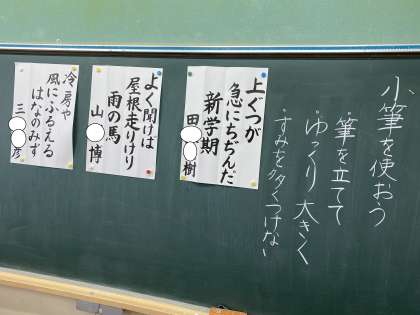 小筆を使おう
筆を立てて
ゆっくり 大きく
・すみを多くつけない
上ぐつが
急にちぢんだ
新学期
田 樹
よく聞けば
屋根走りけり
雨の馬
山 博
冷房や
風にふるえる
はなのみず
三 彦